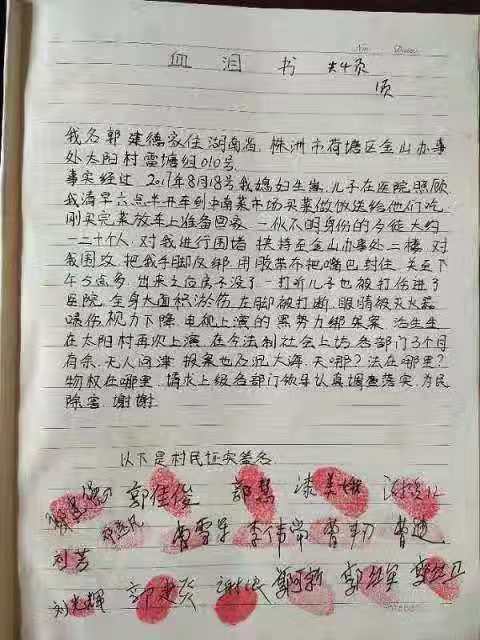 血泪书 共4页
页
我名郭建德家住湖南省，株洲市荷塘区金山办事
处太阳村雷塘组010号
事实经过 2017年8月18号我媳妇生崽，儿子在医院照顾
我清早六点半开车到中南菜市场买菜做饭送给他们吃
刚买完菜放车上准备回家 一伙不明身份的歹徒大约
一二十个人，对我进行围堵 挟持至金山办事处二楼，对
我围攻，把我手脚反绑，用胶带布把嘴巴封住 关至下
午5点多，出来之后房子没了一打听儿子也被打伤进了
医院，全身大面积淤伤，左脚被打断，眼睛被灭火器
喷伤视力下降，电视上演的黑势力绑架案，活生生
在太阳村再次上演，在今法制社会上访，各部门3个月
有余，无人问津 报案也石沉大海，天哪？法在哪里？
物权在哪里，请求上级各部门领导认真调查落实，为民
除害，谢谢
以下是村民证实签名
郭佳俊 郭慧
曾雪军 李伟常
刘芳
刘光辉 郭建